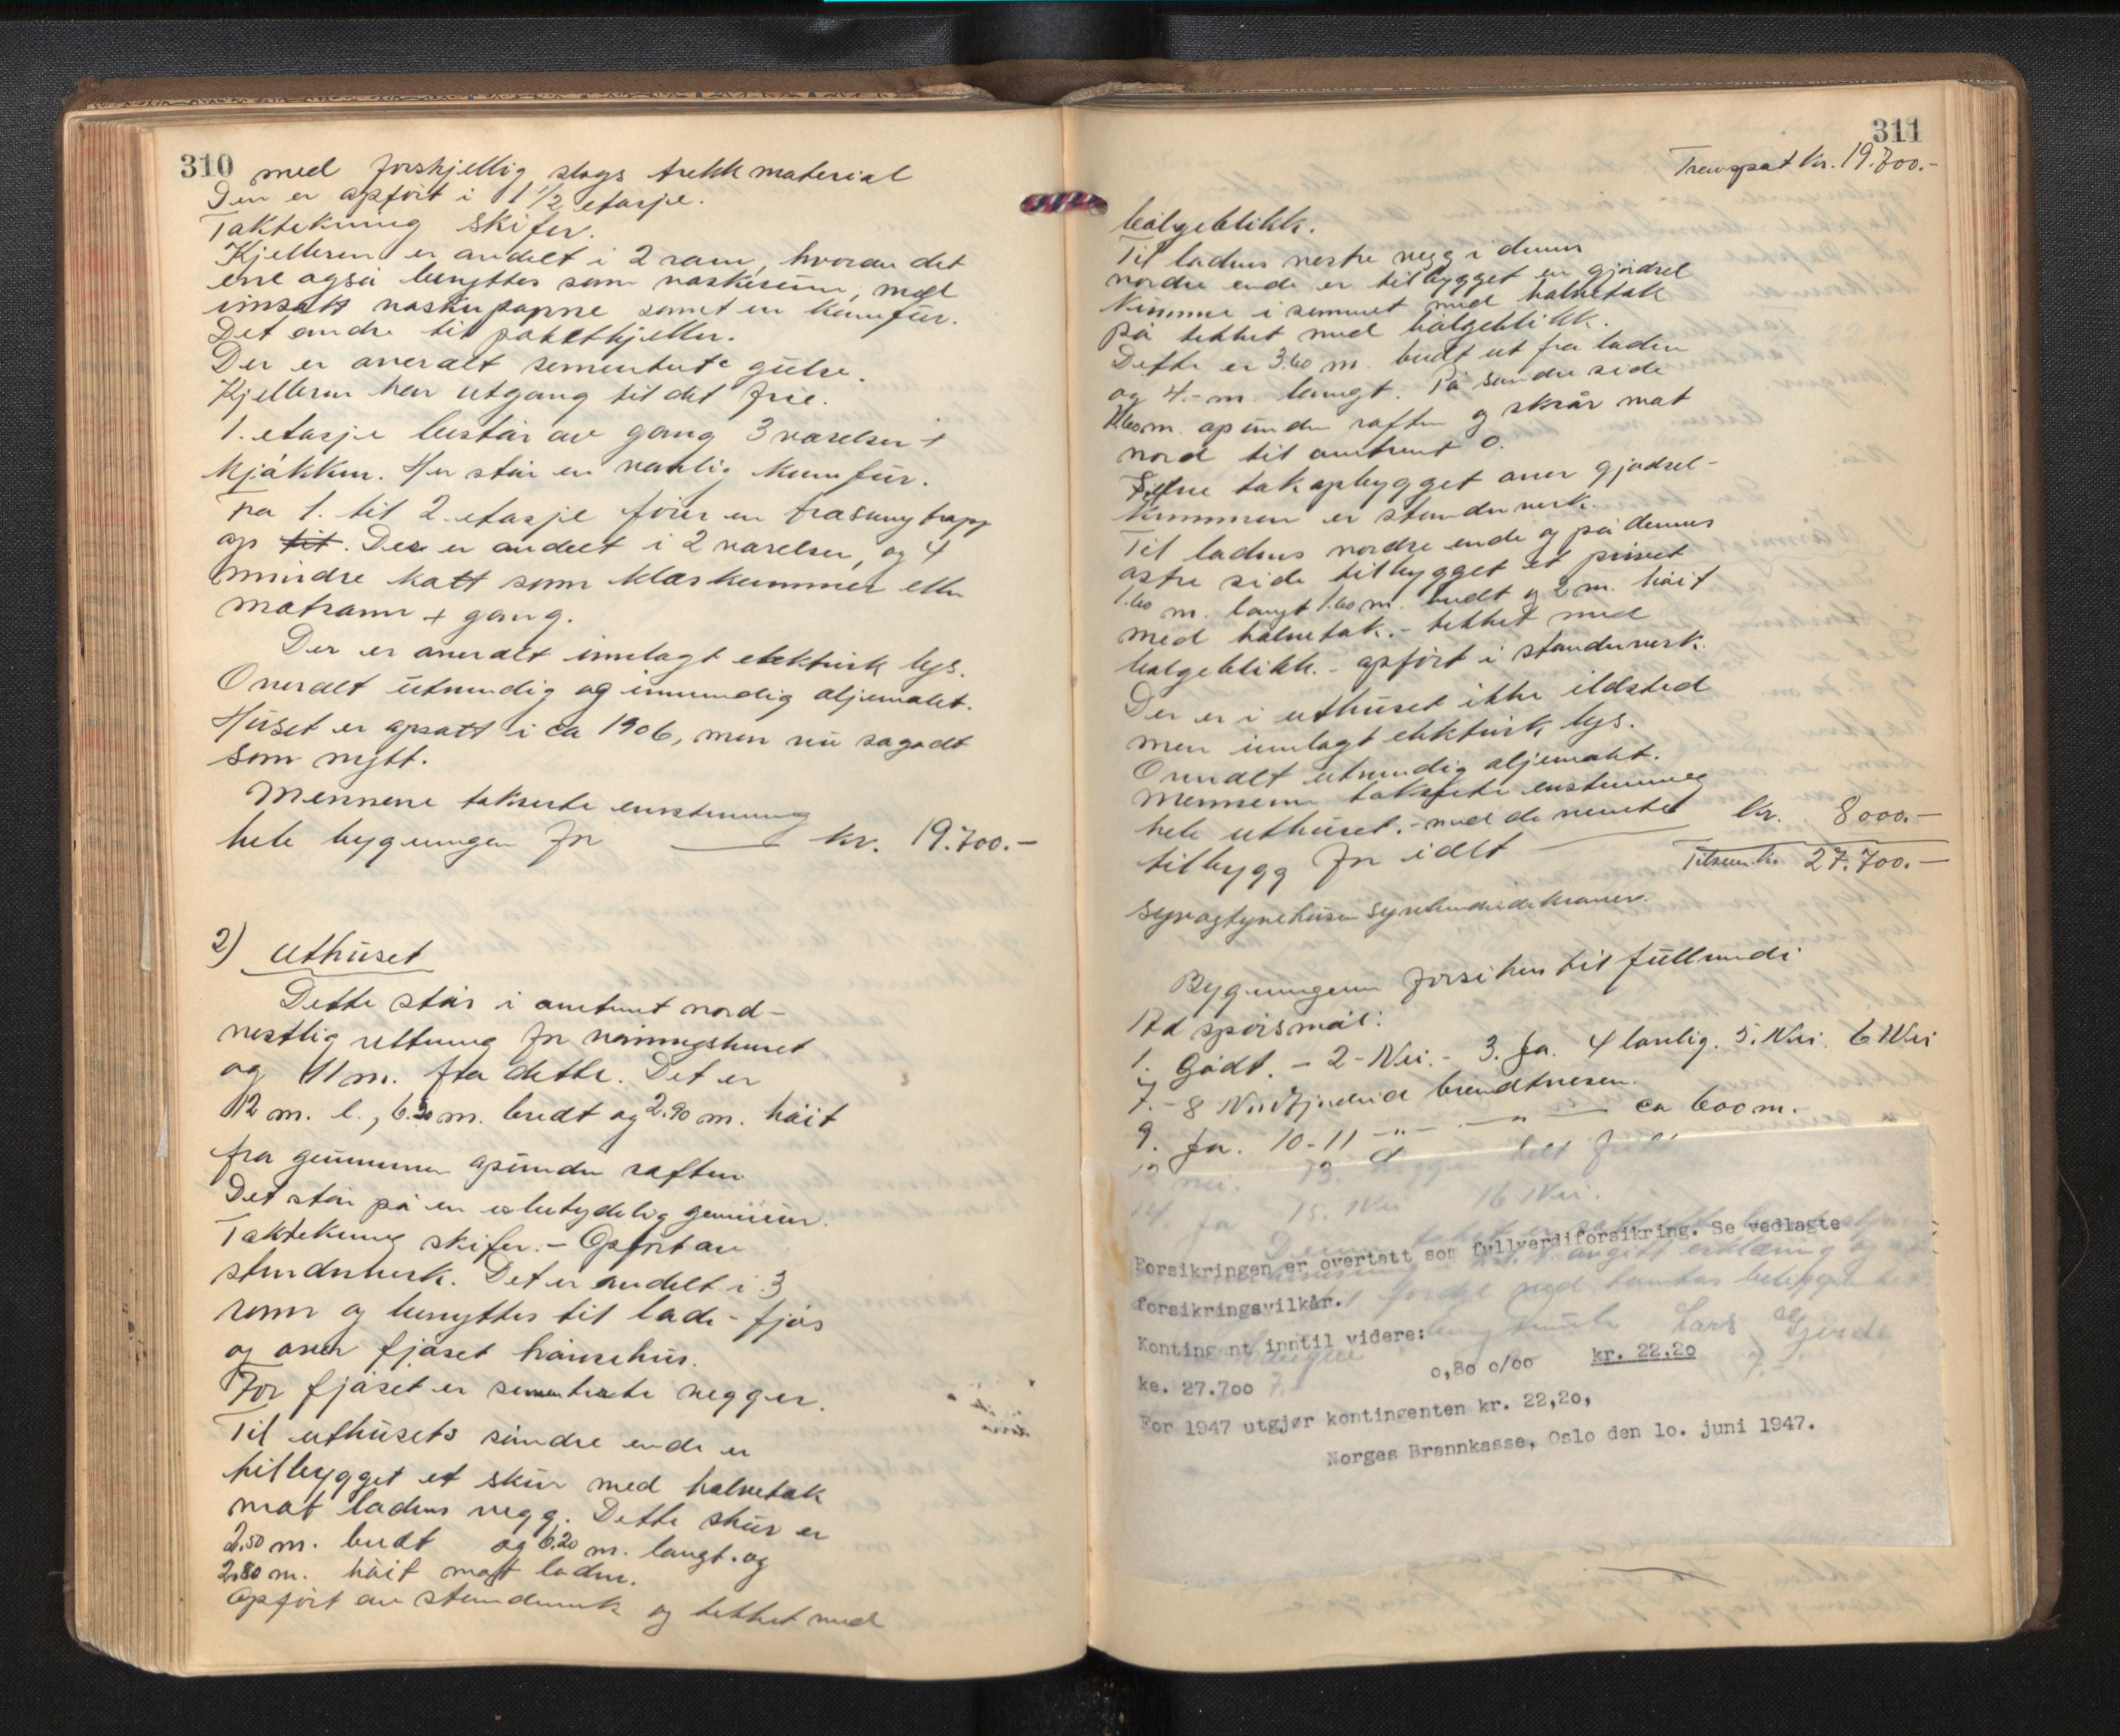 310
med forskjellig slags trekkmaterial
Den er opført i 1 1/2 etasje.
Taktekning skifer.
Kjelleren er avdelt i 2 rom, hvorav det
ene også benyttes som vaskerum, med
innsatt vaskepanne samt en komfur.
Det andre til potetkjeller.
Der er overalt sementerte gulve.
Kjelleren har utgang til det frie.
1. etasje består av gang 3 værelser +
kjøkken. Her står en vanlig komfur.
Fra 1. til 2. etasje fører en trasvingtrapp
op til. Der er avdelt i 2 værelser, og 4
mindre kott som klæskammer eller
matrom + gang.
Der er overalt innlagt elektrisk lys.
Overalt utvendig og innvendig oljemalet.
Huset er opsatt i ca 1906, men nu sågodt
som nytt.
Mennene takserte enstemmig
hele bygningen for kr. 19.700.-
2) Uthuset
Dette står i omtrent nord-
vestlig rettning for våningshuset
og 11 m. fra dette. Det er
12 m. l., 6.30 m. bredt og 2.90 m. høit
fra grunnmur opunder raften
Det står på en ubetydelig grunnmur.
Taktekning skifer. - Opført av
stenderverk. Det er avdelt i 3
rom og benyttes til lade - fjøs
og over fjøset hønsehus.
For fjøset er sementerte vegger.
Til uthusets søndre ende er
tilbygget et skur med halvetak
mot ladens vegg. Dette skur er
2.50 m. bredt og 6.20 m. langt. og
2.80 m. høit mott laden.
Opført av stenderverk og tekket med
311
Transport kr. 19.700.-
bølgeblikk.
Til ladens vestre vegg i dennes
nordre ende er tilbygget en gjødsel
kumme i sement med halvetak
på tekket med bølgeblikk.
Dette er 3.60 m. bredt ut fra laden
og 4.- m. langt. På søndre side
m. opunder raften og skrår mot
nord til omtrent 0.
takopbygget over gjødsel-
kummen er stenderverk.
Til ladens nordre ende og på dennes
østre side tilbygget et privet
1.60 m. langt 1.60 m. bredt og 2 m. høit
med halvetak. - tekket med
bølgeblikk. - opført i stenderverk.
Der er i uthuset ikke ildsted
men innlagt elektrisk lys.
Overalt utvendig oljemalt.
Mennene takserte enstemmig
hele uthuset. - med de nevnte
tilbygg for ialt kr. 8000.-
Tilsam. kr. 27.700.-
syvogtyvetusen syvhundrede kroner.
Bygningene forsikres til fullverdi
Ad spørsmål:
1. Godt. - 2 - Nei. - 3. Ja. 4 lovlig. 5. Nei. 6 Nei
7. - 8 brandtvesen.
9. Ja. 10-11 -"- -"- ca 600 m.
12 nei. 13. helt fritt
14. Ja 15. Nei 16 Nei.
Forsikringen er overtatt som fullverdiforsikring. Se vedlagte
forsikringsvilkår.
Lars Gjerde
Kontingent inntil videre:
ke. 27.700 0,80 o/oo kr. 22,20
For 1947 utgjør kontingenten kr. 22,20,
Norges Brannkasse, Oslo den 10. juni 1947.